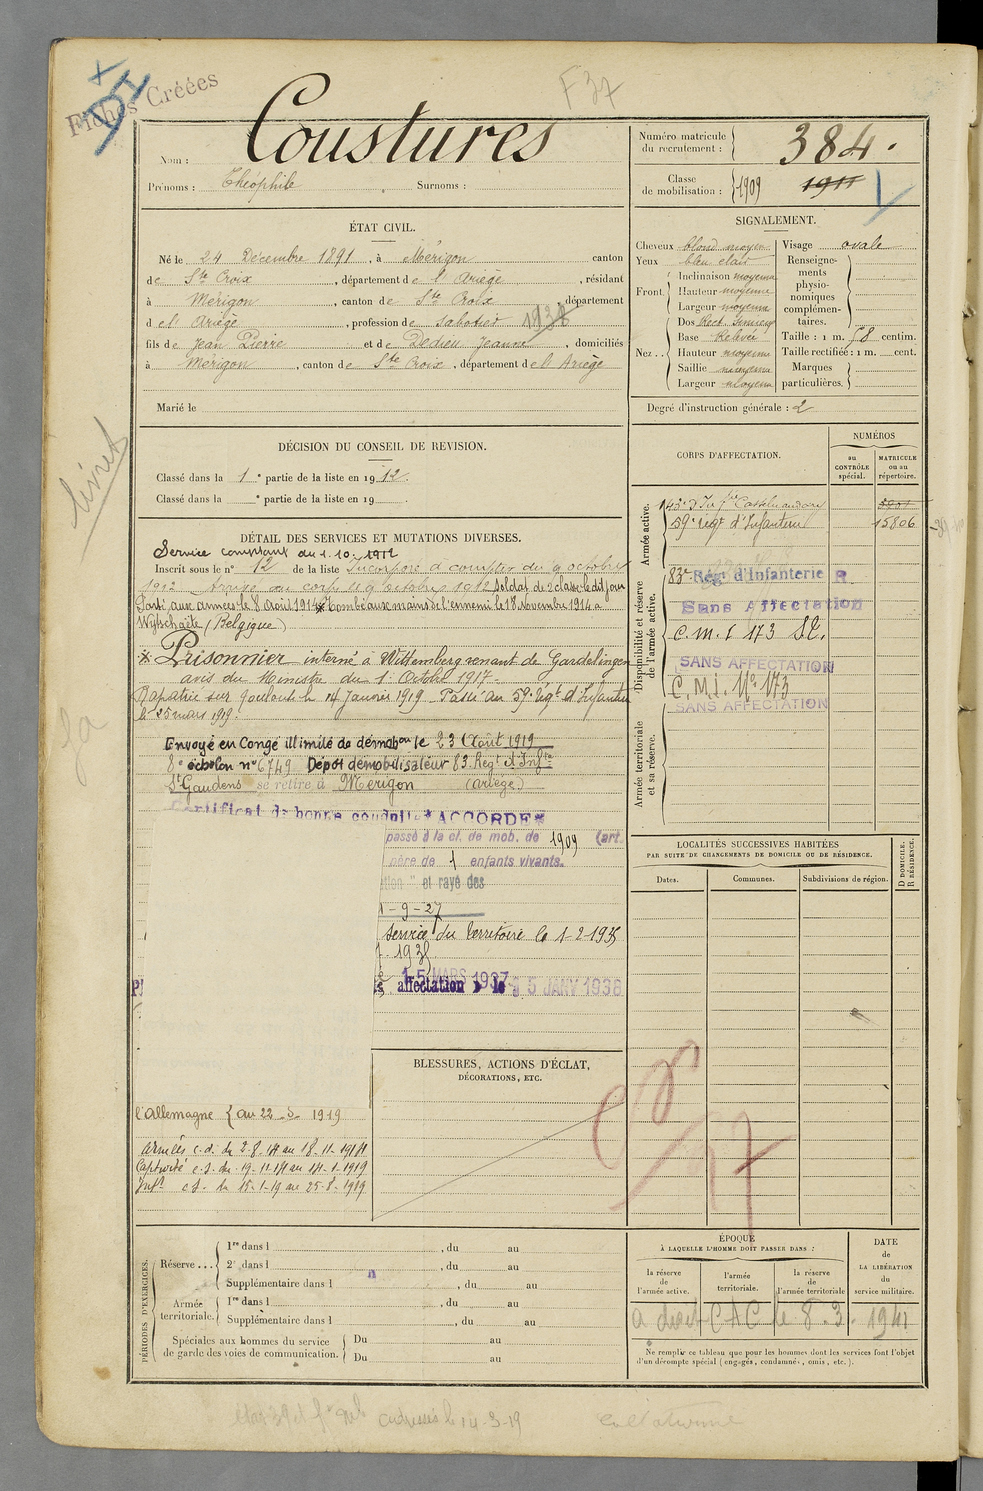 Fiches Créées
F 37
Nom : Coustures
Prénoms : Théophile Surnoms :
Numéro matricule du recrutement : 384.
Classe de mobilisation : 1909 1911
ÉTAT CIVIL.
Né le 24 Décembre 1891, à Mérigon canton
de Ste Croix, département de l'Ariège, résidant
à Mérigon, canton de Ste Croix, département
d el' Ariège, profession de sabotier
fils de Jean Pierre et de Dedieu Jeanne, domiciliés
à Mérigon, canton de Ste Croix, département de l'Ariège
Marié le
SIGNALEMENT.
Cheveux blond moyen
Yeux bleu clair
Front. Inclinaison moyenne
Hauteur moyenne
Largeur moyenne
Nez.. Dos Rect. sinueux
Base Relevée
Hauteur moyenne
Saillie moyenne
Largeur moyenne
Visage ovale
Renseigne-
ments
physio-
nomiques
complémen-
taires.
Taille : 1 m. 58 centim.
Taille rectifiée : 1 m. cent.
Marques
particulières.
Degré d'instruction générale : 2
DÉCISION DU CONSEIL DE REVISION.
Classé dans la 1e partie de la liste en 1912.
Classé dans la e partie de la liste en 19
DÉTAIL DES SERVICES ET MUTATIONS DIVERSES.
Service comptant du 1.10.1912
Inscrit sous le n° 12 de la liste Incorporé à compter du 9 octobre
1912 Arrivé au corps le 9 octobre 1912 Soldat de 2e classe ledit jour
Parti aux armées le 8 Août 1914 Tombé aux mains de l'ennemi le 18 Novembre 1914 à
Wytschaëte (Belgique)
Prisonnier interné à Wittemberg venant de Gardelingen
avis du Ministre du 1er Octobre 1917-
Rapatrié sur Toulouse le 14 Janvier 1919 Passé au 59e Régt d'Infanterie
le 25 mars 1919.
Envoyé en Congé illimité de démobon le 23 Août 1919
8e échelon n° 6749 Dépôt démobilisateur 83 Régt d'Infie
St Gaudens se retire à Mérigon (Ariège)
Certificat de bonne conduite *ACCORDÉ*
passé à la cl. de mob. de 1909 (art.
père de 1 enfants vivants.
et rayé des
1-9-27
service du territoire le 1-2-1935
1935
15 MARS 1937
affectation le 5 JANV 1938
l'Allemagne { au 22 _ 1919
Armées c.d. du 2-8-14 au 18-11-1914
Captivité c.s. du 19-11-14 au 14-1-1919
c.s. du 15-1-19 au 25-8-1919
BLESSURES, ACTIONS D'ÉCLAT,
DÉCORATIONS, ETC.
CORPS D'AFFECTATION.
NUMÉROS
au CONTRÔLE spécial.
MATRICULE ou au répertoire.
Armée active.
143e d'Infie Castelnaudary
59e régt d'Infanterie 15806
Disponibilité et réserve de l'armée active.
83e Régt d'Infanterie
Sans Affectation
C.M.I 173
SANS AFFECTATION
C.M.I. No 173
SANS AFFECTATION
Armée territoriale et sa réserve.
LOCALITÉS SUCCESSIVES HABITÉES
PAR SUITE DE CHANGEMENTS DE DOMICILE OU DE RÉSIDENCE.
Dates. Communes. Subdivisions de région. D DOMICILE. R RÉSIDENCE.
PÉRIODES D'EXERCICES.
Réserve... 1re dans l , du au
2e dans l , du au
Supplémentaire dans l , du au
Armée territoriale. 1re dans l , du au
Supplémentaire dans l , du au
Spéciales aux hommes du service Du au
de garde des voies de communication. Du au
ÉPOQUE
À LAQUELLE L'HOMME DOIT PASSER DANS :
la réserve de l'armée active.
l'armée territoriale.
la réserve de l'armée territoriale
DATE de LA LIBÉRATION du service militaire.
a droit CAC le 8.3.1941
Ne remplir ce tableau que pour les hommes dont les services font l'objet
d'un décompte spécial (engagés, condamnés, omis, etc.).
livret
adressés le 14-3-19